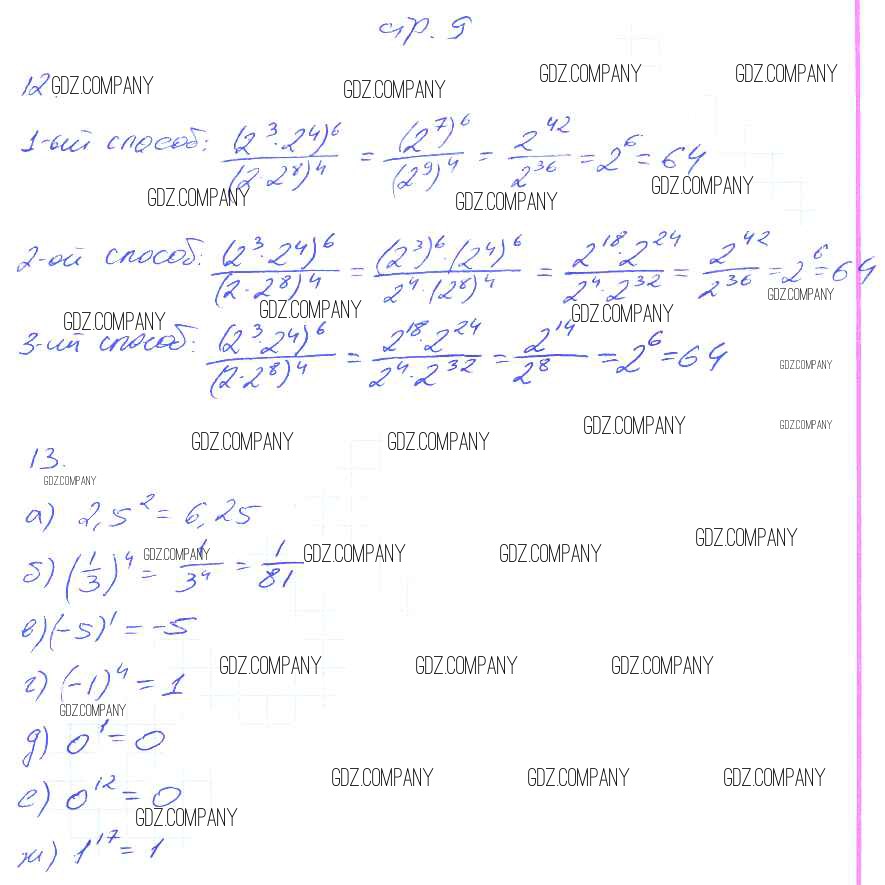 стр. 9
12. GDZ.COMPANY GDZ.COMPANY GDZ.COMPANY GDZ.COMPANY
1-ый способ: (2³·2⁴)⁶/(2·2⁸)⁴ = (2⁷)⁶/(2⁹)⁴ = 2⁴²/2³⁶ = 2⁶ = 64
GDZ.COMPANY GDZ.COMPANY GDZ.COMPANY
2-ой способ: (2³·2⁴)⁶/(2·2⁸)⁴ = (2³)⁶·(2⁴)⁶/2⁴·(2⁸)⁴ = 2¹⁸·2²⁴/2⁴·2³² = 2⁴²/2³⁶ = 2⁶ = 64
GDZ.COMPANY GDZ.COMPANY GDZ.COMPANY GDZ.COMPANY
3-ий способ: (2³·2⁴)⁶/(2·2⁸)⁴ = 2¹⁸·2²⁴/2⁴·2³² = 2¹⁴/2⁸ = 2⁶ = 64
GDZ.COMPANY
GDZ.COMPANY GDZ.COMPANY GDZ.COMPANY GDZ.COMPANY
13.
GDZ.COMPANY
а) 2,5² = 6,25
GDZ.COMPANY
б) (1/3)⁴ = 1/3⁴ = 1/81
GDZ.COMPANY GDZ.COMPANY GDZ.COMPANY
в) (-5)¹ = -5
GDZ.COMPANY GDZ.COMPANY GDZ.COMPANY
г) (-1)⁴ = 1
GDZ.COMPANY
д) 0¹ = 0
GDZ.COMPANY GDZ.COMPANY GDZ.COMPANY
е) 0¹² = 0
GDZ.COMPANY
ж) 1¹⁷ = 1